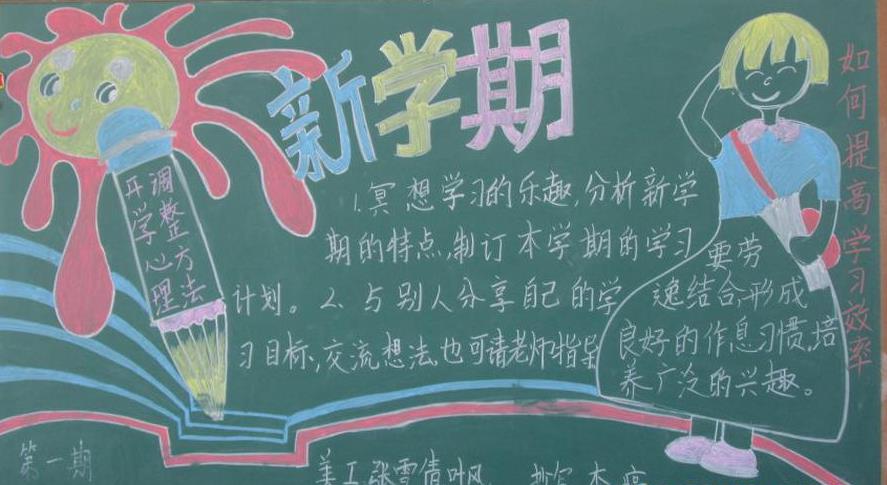 新学期
开学心理
调整方法
1.冥想学习的乐趣,分析新学
期的特点,制订本学期的学习
计划。2、与别人分享自己的学
习目标,交流想法,也可请老师指导
要劳
逸结合,形成
良好的作息习惯,培
养广泛的兴趣。
如何提高学习效率
第一期
美工:张雪倩叶风